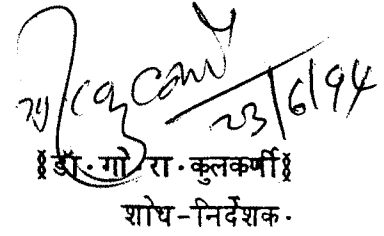 23/6/94
डॉ. गो. रा. कुलकर्णी
शोध-निर्देशक.